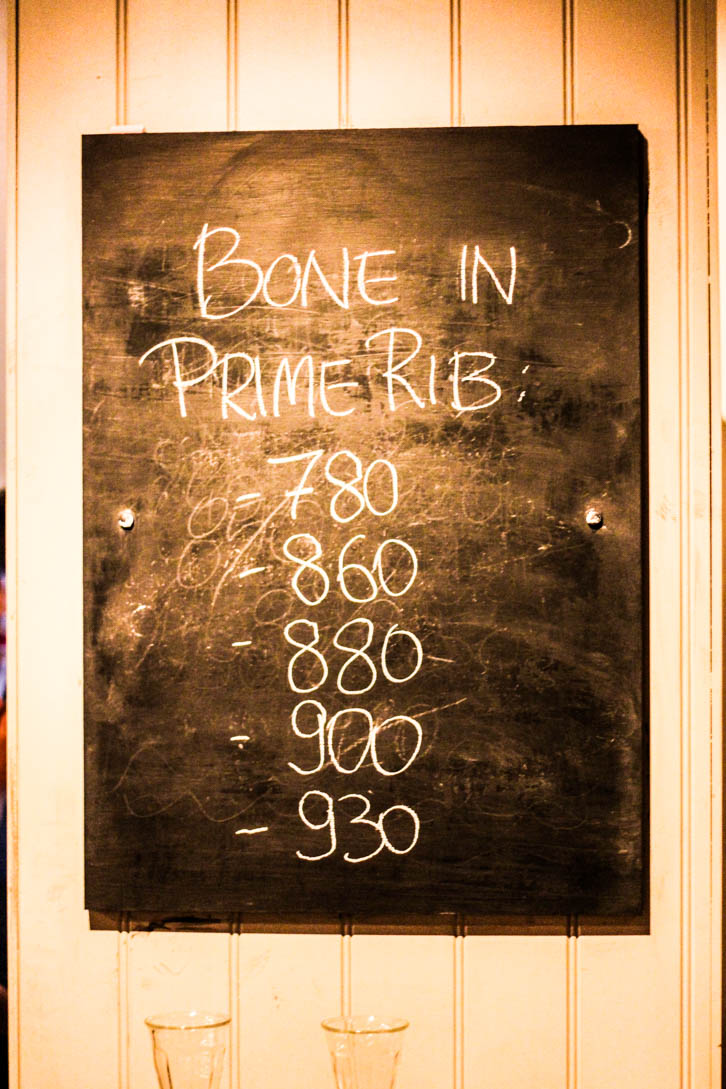 BONE IN
PRIME RIB:
- 780
- 860
- 880
- 900
- 930